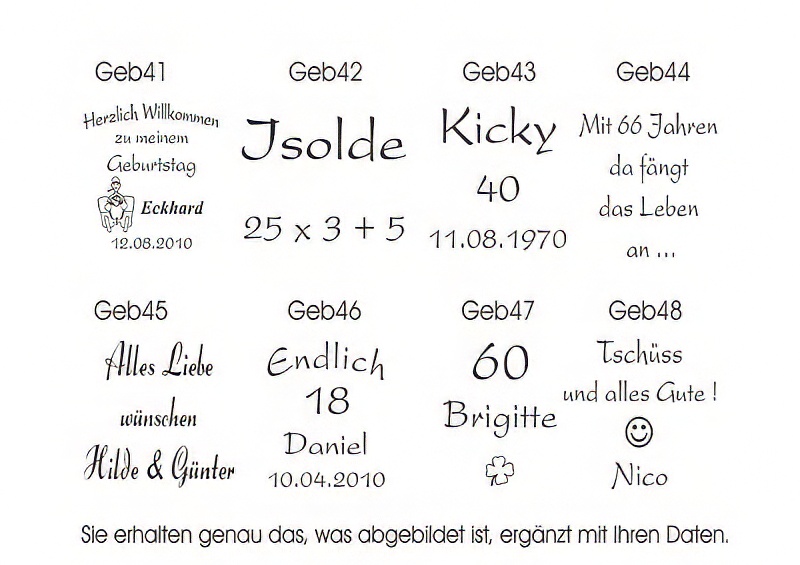 Geb41
Herzlich Willkommen
zu meinem
Geburtstag
Eckhard
12.08.2010
Geb42
Isolde
25 x 3 + 5
Geb43
Kicky
40
11.08.1970
Geb44
Mit 66 Jahren
da fängt
das Leben
an ...
Geb45
Alles Liebe
wünschen
Hilde & Günter
Geb46
Endlich
18
Daniel
10.04.2010
Geb47
60
Brigitte
Geb48
Tschüss
und alles Gute !
Nico
Sie erhalten genau das, was abgebildet ist, ergänzt mit Ihren Daten.